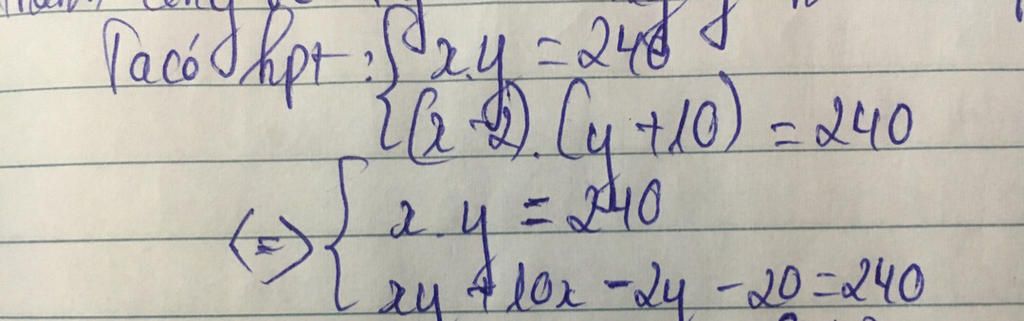 Ta có hpt: { x.y = 240
{ (x-2).(y+10) = 240
<=> { x.y = 240
xy + 10x - 2y - 20 = 240